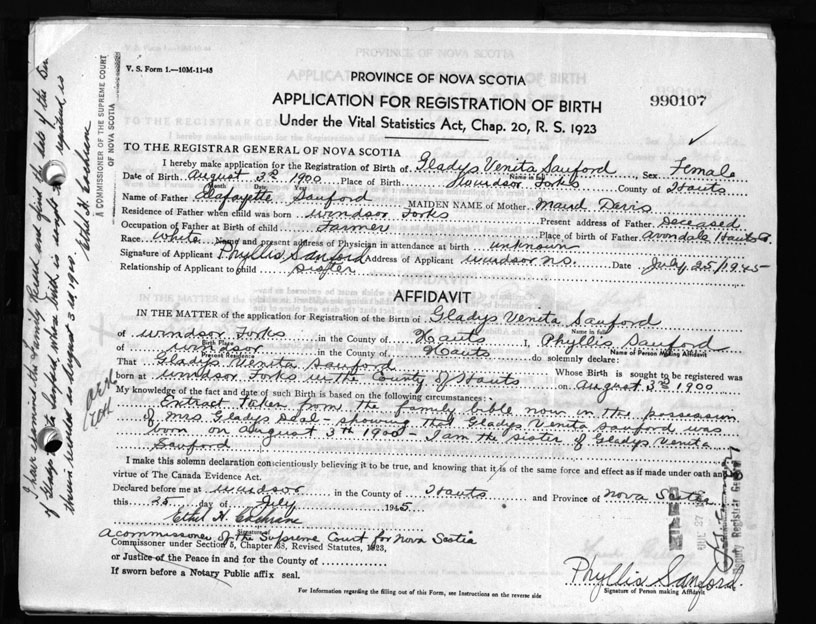 V. S. Form 1.—10M-11-45
PROVINCE OF NOVA SCOTIA
APPLICATION FOR REGISTRATION OF BIRTH
990107
Under the Vital Statistics Act, Chap. 20, R. S. 1923
TO THE REGISTRAR GENERAL OF NOVA SCOTIA
I hereby make application for the Registration of Birth of Gladys Venita Sanford, Sex Female
Name in full
Date of Birth August 3rd 1900 Place of Birth Windsor Forks County of Hants
Month Date Year
Name of Father Lafayette Sanford MAIDEN NAME of Mother Maud Davis
Residence of Father when child was born Windsor Forks Present address of Father Deceased
Occupation of Father at Birth of child Farmer Place of birth of Father Avondale Hants Co.
Race White Name and present address of Physician in attendance at birth unknown
Signature of Applicant Phyllis Sanford Address of Applicant Windsor N.S. Date July 25/1945
Relationship of Applicant to child sister
AFFIDAVIT
IN THE MATTER of the application for Registration of the Birth of Gladys Venita Sanford
Name in full
of Windsor Forks in the County of Hants I, Phyllis Sanford
Birth Place Name of Person Making Affidavit
of Windsor in the County of Hants do solemnly declare:
Present Residence
That Gladys Venita Sanford Whose Birth is sought to be registered was
born at Windsor Forks in the County of Hants on August 3rd 1900
My knowledge of the fact and date of such Birth is based on the following circumstances:
Extract taken from the family bible now in the possession
of Mrs Gladys - showing that Gladys Venita Sanford was
born on August 3th 1900 - I am the sister of Gladys Venita
Sanford
I make this solemn declaration conscientiously believing it to be true, and knowing that it is of the same force and effect as if made under oath and
virtue of The Canada Evidence Act.
Declared before me at Windsor in the County of Hants and Province of Nova Scotia
this 25 day of July 1945
Ethel H. Cochran
Signature of
A commissioner of the Supreme Court for Nova Scotia
Commissioner under Section 5, Chapter 38, Revised Statutes, 1923,
or Justice of the Peace in and for the County of
If sworn before a Notary Public affix seal.
Phyllis Sanford.
Signature of Person making Affidavit
For Information regarding the filling out of this Form, see Instructions on the reverse side
I have examined the Family Record and find the date of the Birth
of Gladys Sanford whose birth is sought to be registered is
therein recorded as August 3rd 1900.
Ethel H. Cochran
A COMMISSIONER OF THE SUPREME COURT
OF NOVA SCOTIA
Deputy Registrar General